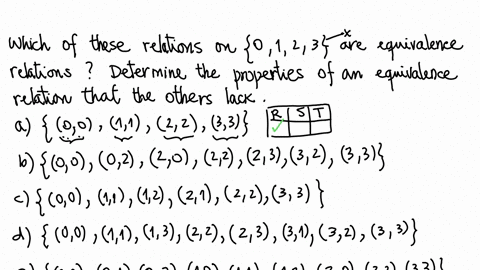 Which of these relations on {0, 1, 2, 3} x are equivalence
relations ? Determine the properties of an equivalence
relation that the others lack.
a) {(0,0), (1,1), (2,2), (3,3)} R S T
✓
b) {(0,0), (0,2), (2,0), (2,2), (2,3), (3,2), (3,3)}
c) {(0,0), (1,1), (1,2), (2,1), (2,2), (3,3)}
d) {(0,0), (1,1), (1,3), (2,2), (2,3), (3,1), (3,2), (3,3)}